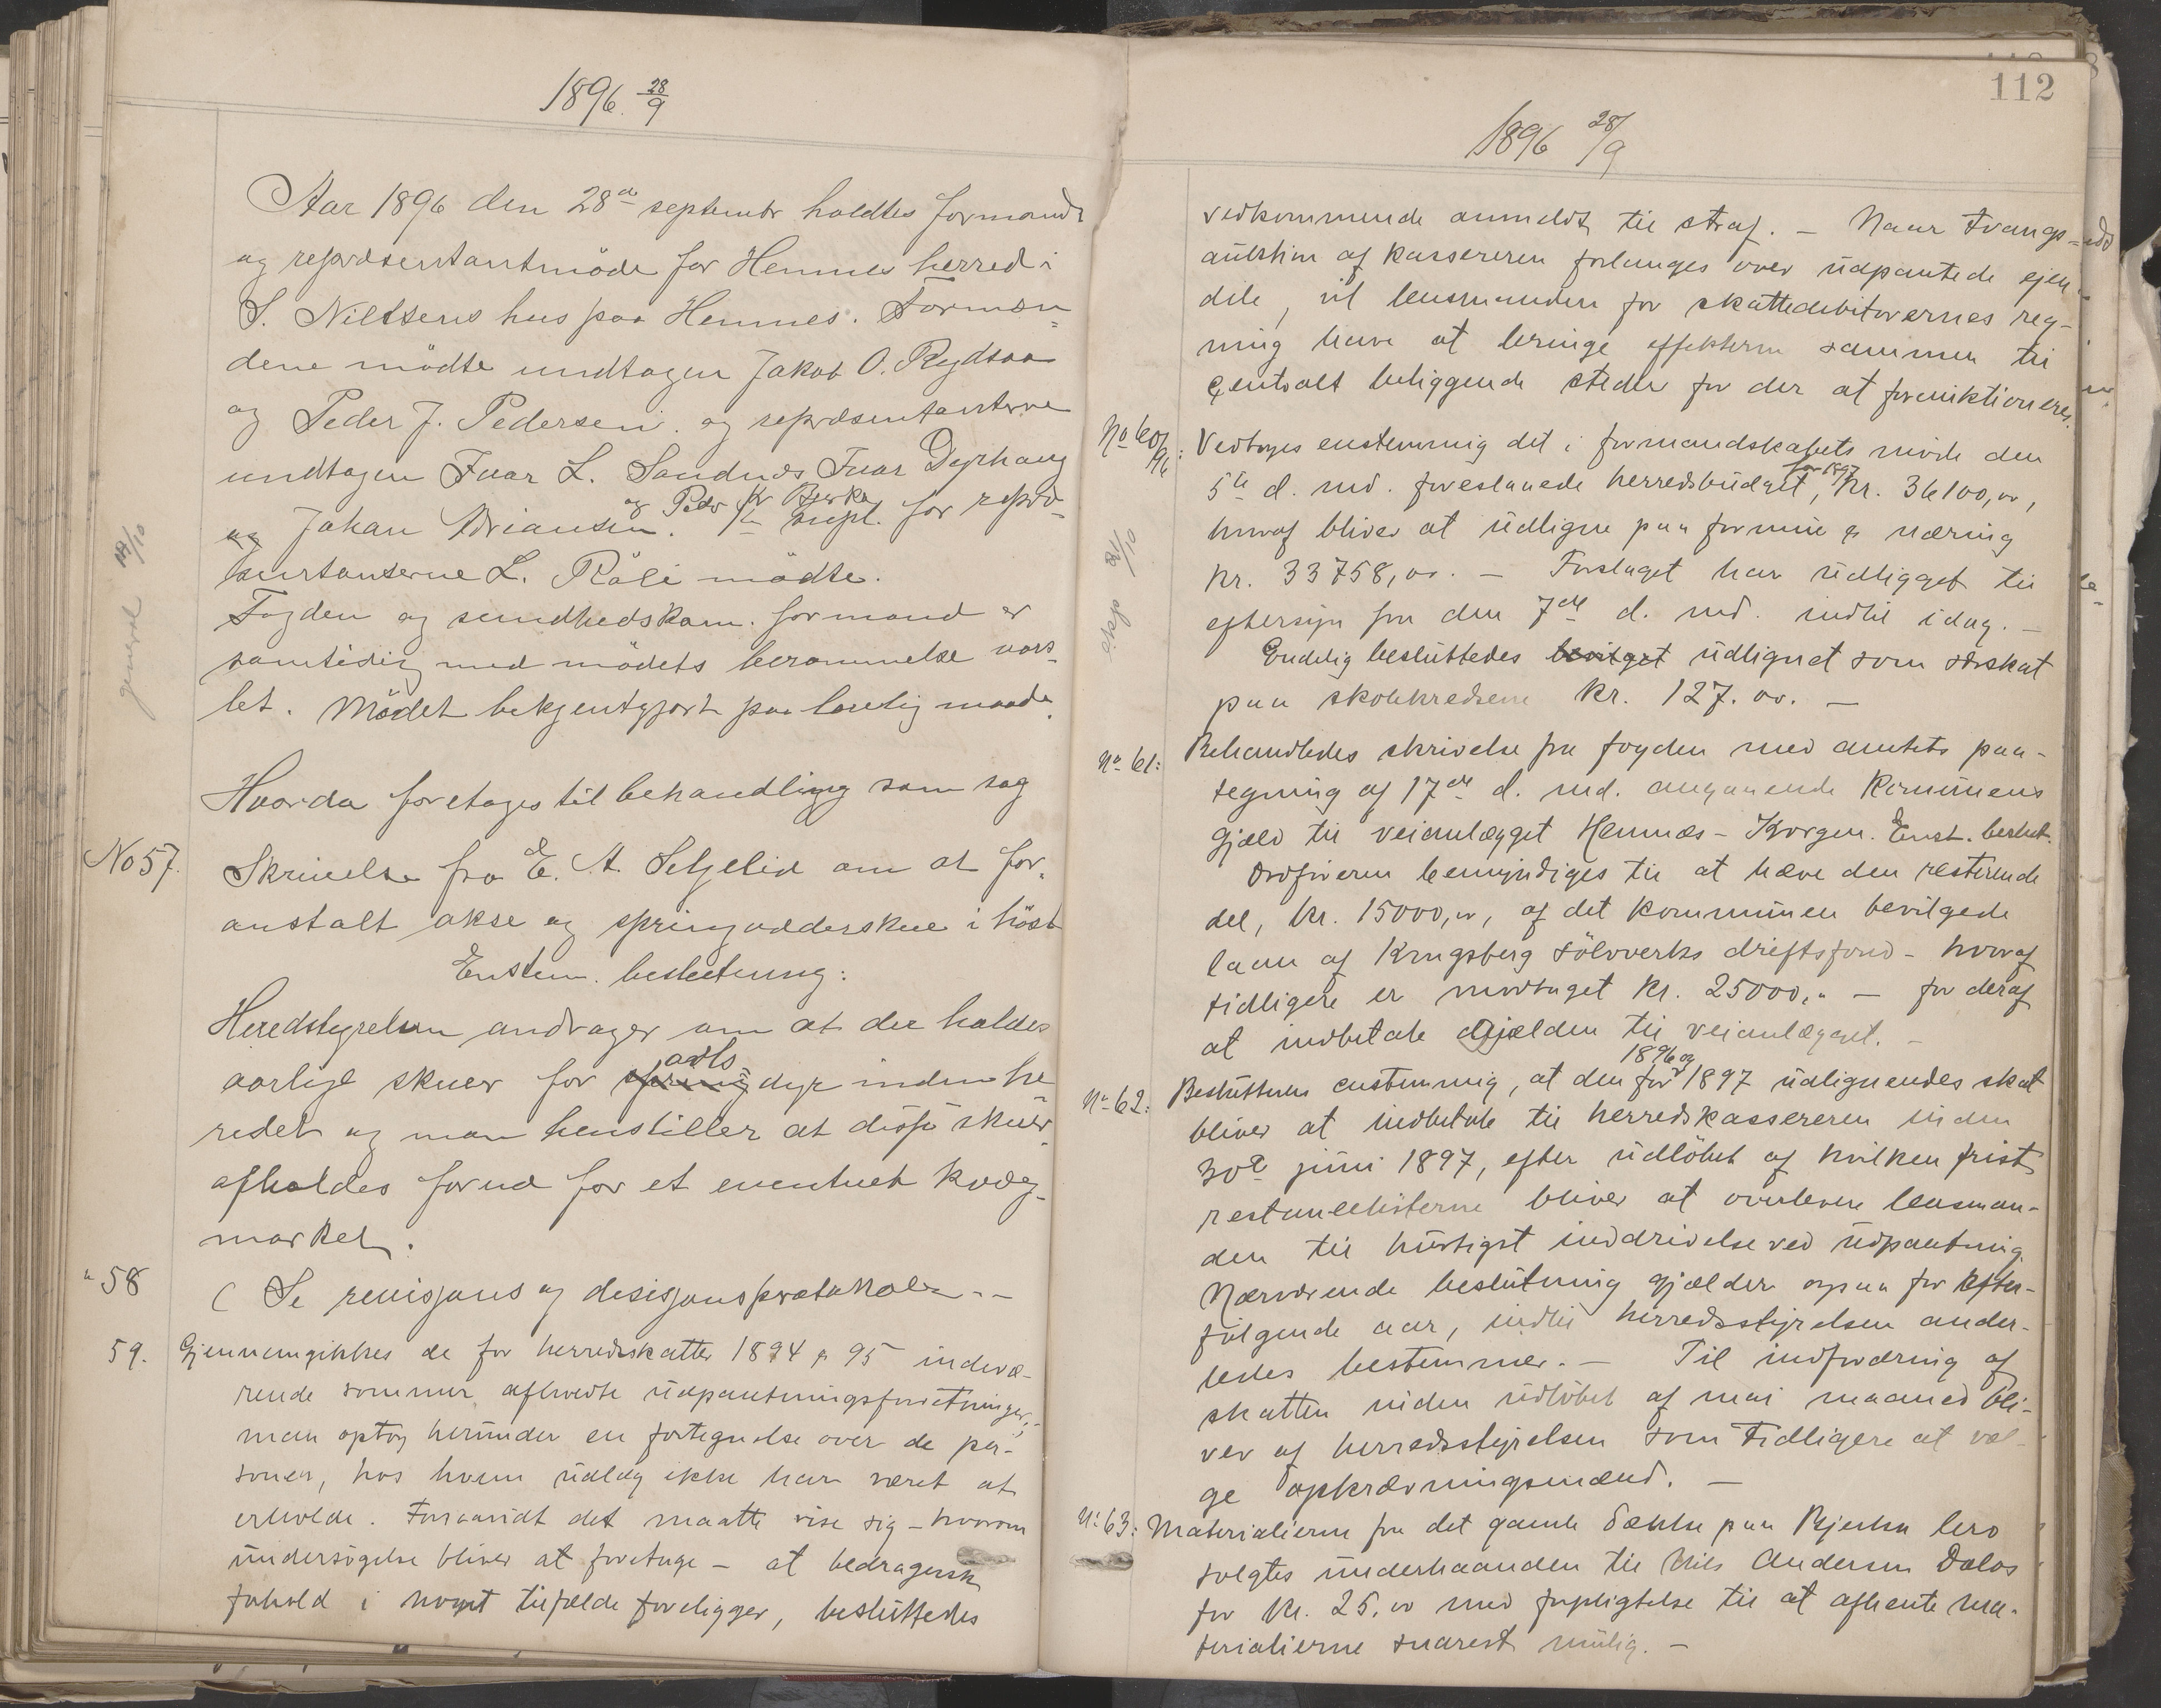 1896. 28/9
Aar 1896 den 28de septembr holdtes formands
og repræsentantmöde for Hemnes herred i
S. Nilssens hus paa Hemnes. Formæn-
dene mödte undtagen Jakob O. Rydsaa
og Peder J. Pedersen. og repræsentanterne
undtagen Ivar L. Sandnes Ivar Dyrhaug
og Peder Kr Berka
og Johan Adriansen. 1ste supl. for repræ-
sentanterne L. Röli mødte.
Fogden og sundhedskom. formand er
samtidig med mödets berammelse vars-
let. Mödet bekjentgjort paa lovlig maade.
Hvorda foretoges til behandling som sag
No 57.
Skrivelse fra E. A. Seljelid om at for-
anstalt okse og springvædderskue i höst
Enstem. beslutning:
Heredstyrelsen andrager om at der holdes
avls
aarlige skuer for spring dyr inden he
redet og man henstiller at disse skuer
afholdes forud for et eventuelt kvæg-
market.
" 58
( Se revisjons og desisjonsprotokolen --
59.
Gjennemgikkes de for herredsskatter 1894 & 95 indevæ-
rende sommer afholdte udpantningsforretninger,-
man optog herunder en fortegnelse over de per-
soner, hos hvem udlæg ikke har været at
erholde. Forsaavidt det maatte vise sig - hvorom
undersøgelse bliver at foretage - at bedragersk
fohold i noget tilfælde foreligger, besluttedes
general 12/10
112
1896 28/9
vedkommende anmeldt til straf. - Naar tvangs-
auktion af kassereren forlanges over udpantede ejen-
dele, vil lensmanden for skattedebitorernes reg-
ning have at bringe effekterne sammen til
centralt beliggende steder for der at foreauktioneres.
No 60/96:
Vedtoges enstemmig det i formandskabets möde den
for 1897
5te d. md. foreslaaede herredsbudget, kr. 36100,00,
hvoraf bliver at udligne paa formue & næring
kr. 33758,00. - Forslaget har udligget til
eftersyn fra den 7de d. md. indtil idag. -
Endelig besluttedes bevilget udlignet som særskat
paa skolekredsene kr. 127.00. -
eksp 21/10
No 61:
Behandledes skrivelse fra fogden med amtets paa-
tegning af 17de d. md. angaaende kommunens
gjæld til veianlægget Hemnes - Korgen. Enst. beslut.
Ordføreren bemyndiges til at hæve den resterende
del, kr. 15000,00, af det kommunen bevilgede
laan af Kongsberg sölvverks driftsfond - hvoraf
tidligere er modtaget kr. 25000,00 - for deraf
at indbetale gjælden til veianlægget. -
1896 og
No 62:
Besluttedes enstemmig, at den for 1897 udlignendes skat
bliver at indbetale til herredskassereren inden
30te juni 1897, efter udlöbet af hvilken frist
restancelisterne bliver at overlevere lensman-
den til hurtigst inddrivelse ved udpantning.
Nærværende beslutning gjælder ogsaa for efter-
fölgende aar, indtil herredsstyrelsen ander-
ledes bestemmer. - Til indfordring af
skatten inden udlöbet af mai maaned bli-
ver af herredsstyrelsen som tidligere at væl-
ge opkrævningsmænd. -
No 63:
Materialierne fra det gamle dække paa Bjerka bro
solgtes underhaanden til Nils Andersen Dalos
for kr. 25,00 med forpligtelse til at afhente ma-
terialierne snarest mulig. -